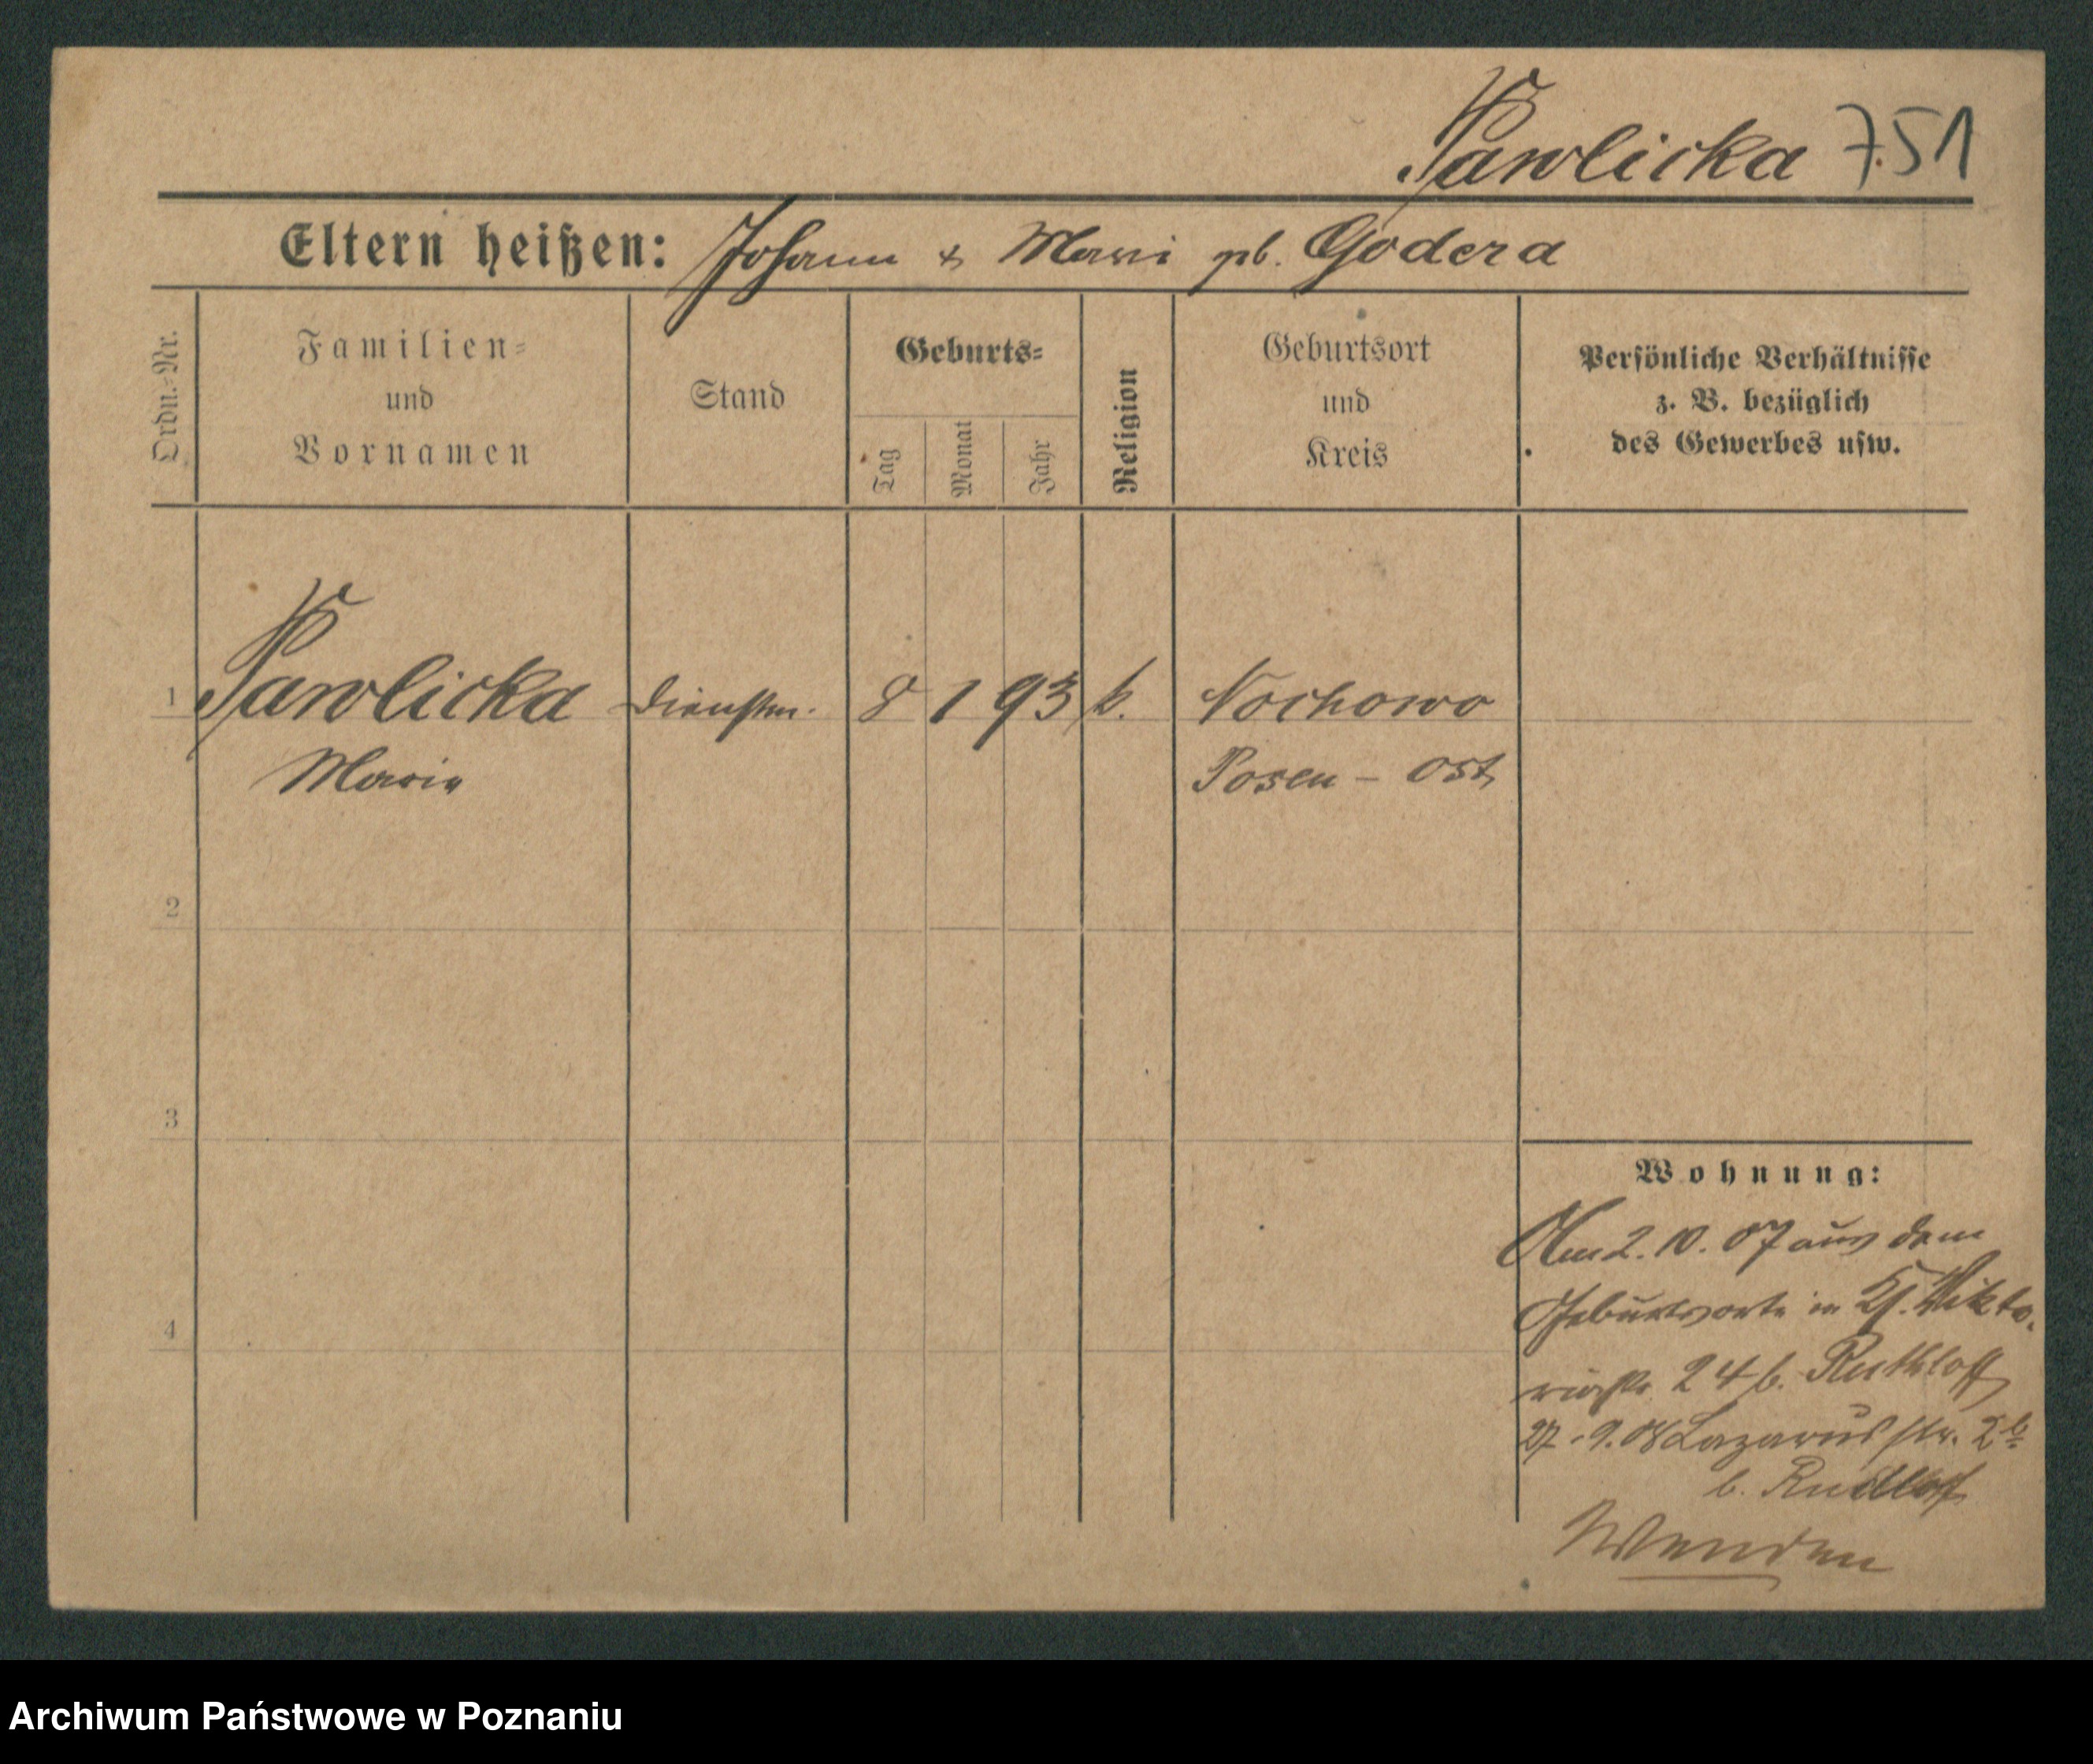 Pawlicka 751
Eltern heißen: Johann & Marie geb. Godera
Ordn.-Nr.
Familien-
und
Vornamen
Stand
Geburts-
Tag
Monat
Jahr
Religion
Geburtsort
und
Kreis
Persönliche Verhältnisse
z. B. bezüglich
des Gewerbes usw.
1 Pawlicka Dienstm. 8 1 93 k. Nochowo
Marie Posen - Ost
2
3
4
Wohnung:
Am 2. 10. 07 aus dem
Geburtsorte in Vikto-
riastr. 24 b. Ruthloff
27. 9. 08 Lazarusstr. 2b
b. Rudloff
Wenden
Archiwum Państwowe w Poznaniu